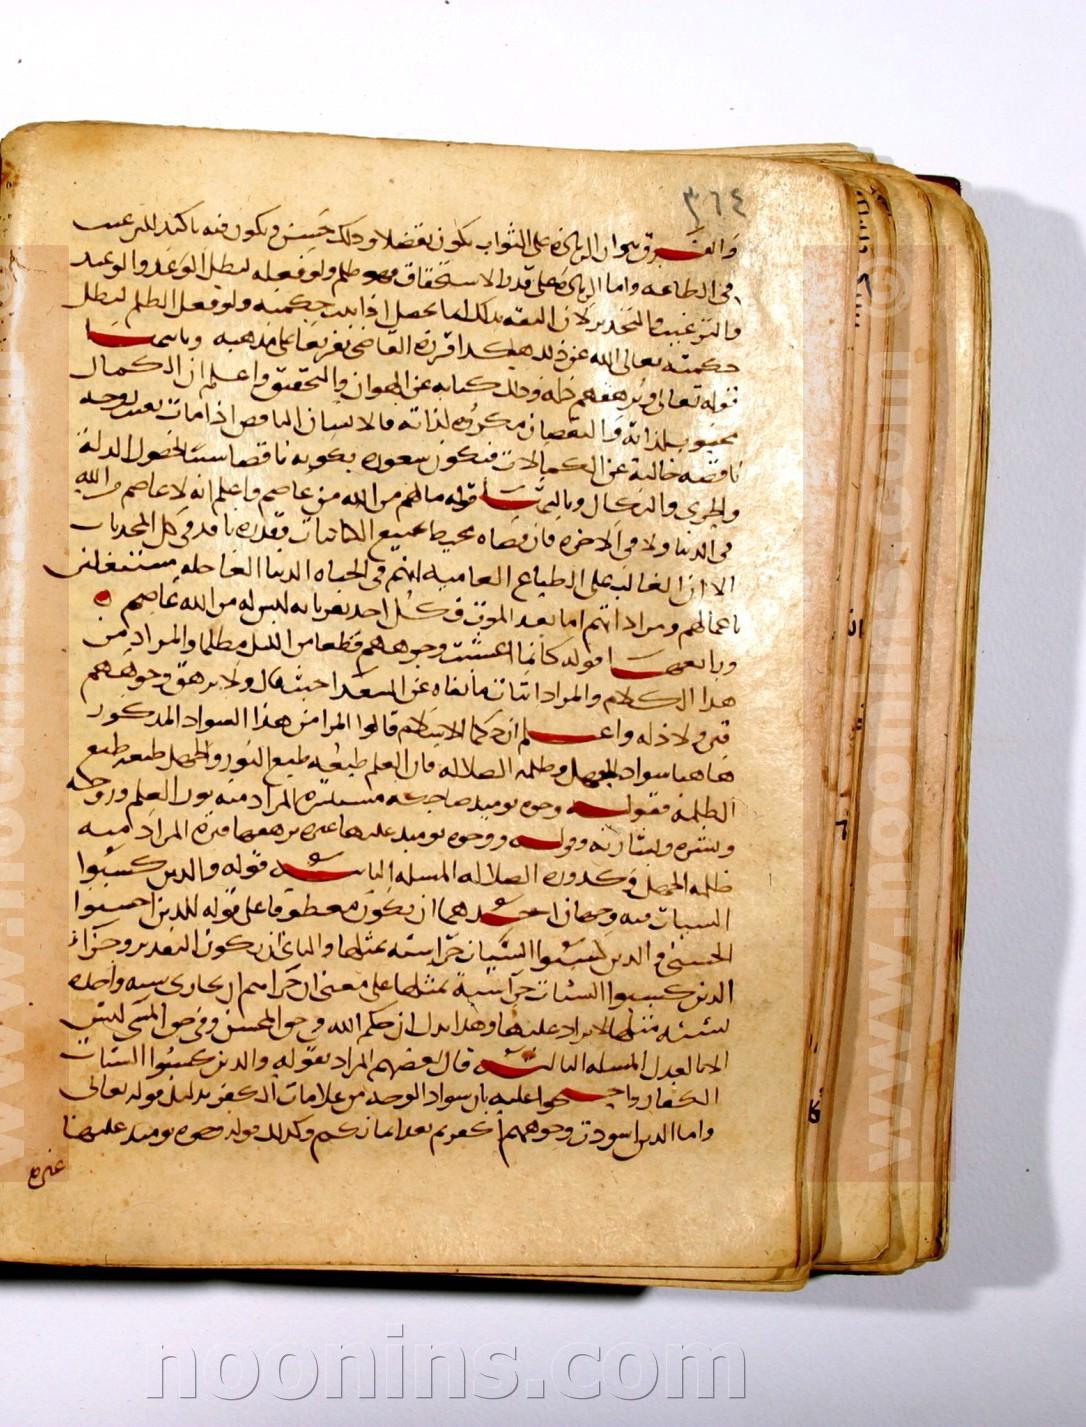 ٣٦٤
والفرق هو ان الزيادة على الثواب يكون تفضلا وذلك حسن ويكون فيه تاكيد للترغيب
في الطاعه واما الزيادة على قدر الاستحقاق فهو ظلم ولو فعله لبطل الوعد والوعيد
والترغيب والتحذير لان الثقه بذلك انما يحصل اذا ثبت حكمته ولو فعل الظلم لبطل
حكمته تعالى الله عن ذلك هكذا قرره القاضي تفريعا على مذهبه وثالثها
قوله تعالى وترهقهم ذلة وذلك كنايه عن الهوان والتحقيق واعلم ان الكمال
محبوب لذاته والنقصان مكروه لذاته فالانسان الناقص اذا مات بقيت روحه
ناقصه خالية عن الكمالات فيكون شعوره بكونه ناقصا سببا لحصول الذلة
والخزي والنكال ورابعها قوله ما لهم من الله من عاصم واعلم انه لا عاصم من الله
في الدنيا ولا في الاخره فان قضاه محيط بجميع الكائنات وقدره نافذ في كل المحدثات
الا ان الغالب على الطباع العاميه انهم في الحياه الدنيا العاجله مستغلين
باعمالهم ومراداتهم اما بعد الموت فكل احد يقر بانه ليس له من الله عاصم
قوله كانما اغشيت وجوههم قطعا من الليل مظلما والمراد من
هذا الكلام والمراد اثبات ما نفاه عن السعدا حيث قال ولا يرهق وجوههم
قتر ولا ذله واعلم ان حكما الاسلام قالوا المراد من هذا السواد المذكور
هاهنا سواد الجهل وظلمه الضلاله فان العلم طبعه طبع النور والجهل طبعه طبع
الظلمه فقوله وجوه يوميذ ضاحكه مستبشرة المراد منه نور العلم وروحه
وبشره وبشارته وقوله ووجوه يوميذ عليها غبره ترهقها قترة المراد منه
ظلمه الجهل وكدوره الضلاله المسله الثانيه قوله والذين كسبوا
السيات فيه وجهان احدهما ان يكون معطوفا على قوله للذين احسنوا
الحسنى وللذين كسبوا السيات جزا سيئه بمثلها والثاني ان يكون التقدير وجزاء
الذين كسبوا السيات جزا سيئة بمثلها على معنى ان جزاهم ان يجازى سيه واحده
بسيئه مثلها لا يزاد عليها وهذا يدل ان حكم الله في حق المحسنين وفي حق المسي ليس
الا بالعدل المسله الثالثه قال بعضهم المراد بقوله والذين كسبوا السيات
الكفار واحتجوا عليه بان سواد الوجه من علامات الكفر بدليل قوله تعالى
واما الذين اسودت وجوههم اكفرتم بعد ايمانكم وكذلك قوله وجوه يوميذ عليها
غبره
www.noonins.com
noonins.com